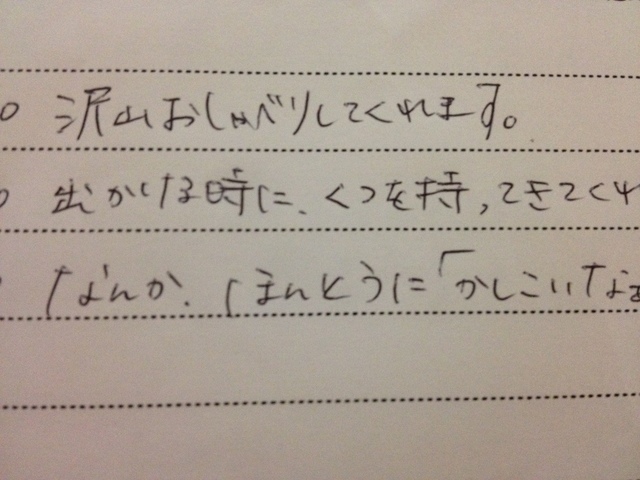 ○ 沢山おしゃべりしてくれます。
○ 出かける時に、くつを持ってきてくれ
なんか、ほんとうに「かしこいなぁ